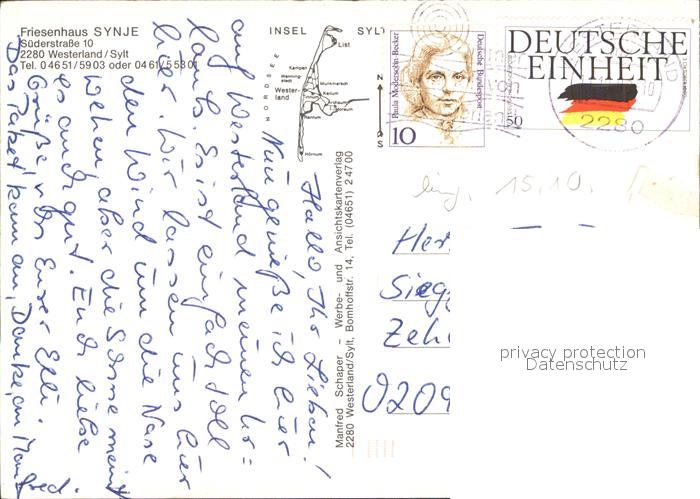 Friesenhaus SYNJE
Süderstraße 10
2280 Westerland/Sylt
Tel. 04651/5903 oder 0461/55301
INSEL SYLT
NORDSEE
List
Kampen
Wester-
land
Keitum
Rantum
Hörnum
N
S
Manfred Schaper - Werbe- und Ansichtskartenverlag
2280 Westerland/Sylt, Bomhoffstr. 14, Tel. (04651) 24700
Paula Modersohn-Becker
Deutsche Bundespost
10
DEUTSCHE
EINHEIT
50
2280
15.10.
Hallo, Ihr Lieben!
Nun genieße ich hier
auf Westerland meinen Ur=
laub. Es ist einfach toll
hier. Wir lassen uns hier
den Wind um die Nase
wehen, aber die Sonne meint
es auch gut. Euch liebe
Grüße von Eurer Elli.
Das Paket kam an, Danke, an Manfred.
Her
Sieg
Zeh
0209
privacy protection
Datenschutz